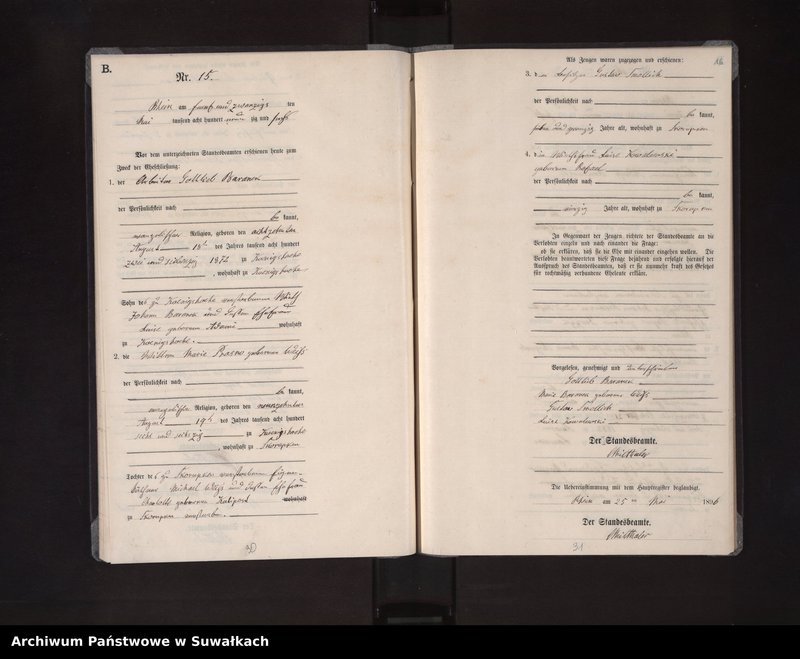 B.
Nr. 15.
Rhein am fünf und zwanzigs ten
Mai tausend acht hundert neun zig und fünf
Vor dem unterzeichneten Standesbeamten erschienen heute zum
Zweck der Eheschließung:
1. der Arbeiter Gottlieb Baranek
der Persönlichkeit nach
be kannt,
evangelischer Religion, geboren den achtzehnten
August 18ten des Jahres tausend acht hundert
zwei und siebenzig 1872 zu Koenigshoehe
, wohnhaft zu Koenigshoehe
Sohn des zu Koenigshoehe verstorbenen Wirths
Johann Baranek und dessen Ehefrau
Luise geborenen Adami wohnhaft
zu Koenigshoehe.
2. die Wittwe Marie geborenen
der Persönlichkeit nach
be kannt,
evangelischer Religion, geboren den neunzehnten
August 19ten des Jahres tausend acht hundert
sechs und sechszig zu Koenigshoehe
, wohnhaft zu Skorupken
Tochter des zu Skorupken verstorbenen Eigen-
käthners Michael und dessen Ehefrau
Charlotte geborenen wohnhaft
zu Skorupken verstorben.
30
Als Zeugen waren zugezogen und erschienen:
16
3. der Besitzer Gustav Smollich
der Persönlichkeit nach
be kannt,
sieben und zwanzig Jahre alt, wohnhaft zu Skorupken
4. die Wirthsfrau Luise Kowalewski
geborenen
der Persönlichkeit nach
be kannt,
vierzig Jahre alt, wohnhaft zu Skorupken
In Gegenwart der Zeugen richtete der Standesbeamte an die
Verlobten einzeln und nach einander die Frage:
ob sie erklären, daß sie die Ehe mit einander eingehen wollen. Die
Verlobten beantworteten diese Frage bejahend und erfolgte hierauf der
Ausspruch des Standesbeamten, daß er sie nunmehr kraft des Gesetzes
für rechtmäßig verbundene Eheleute erkläre.
Vorgelesen, genehmigt und unterschrieben
Gottlieb Baranek
Marie Baranek geborene
Gustav Smollich
Luise Kowalewski
Der Standesbeamte.
Die Uebereinstimmung mit dem Hauptregister beglaubigt.
Rhein am 25ten Mai 1896
Der Standesbeamte.
31
Archiwum Państwowe w Suwałkach